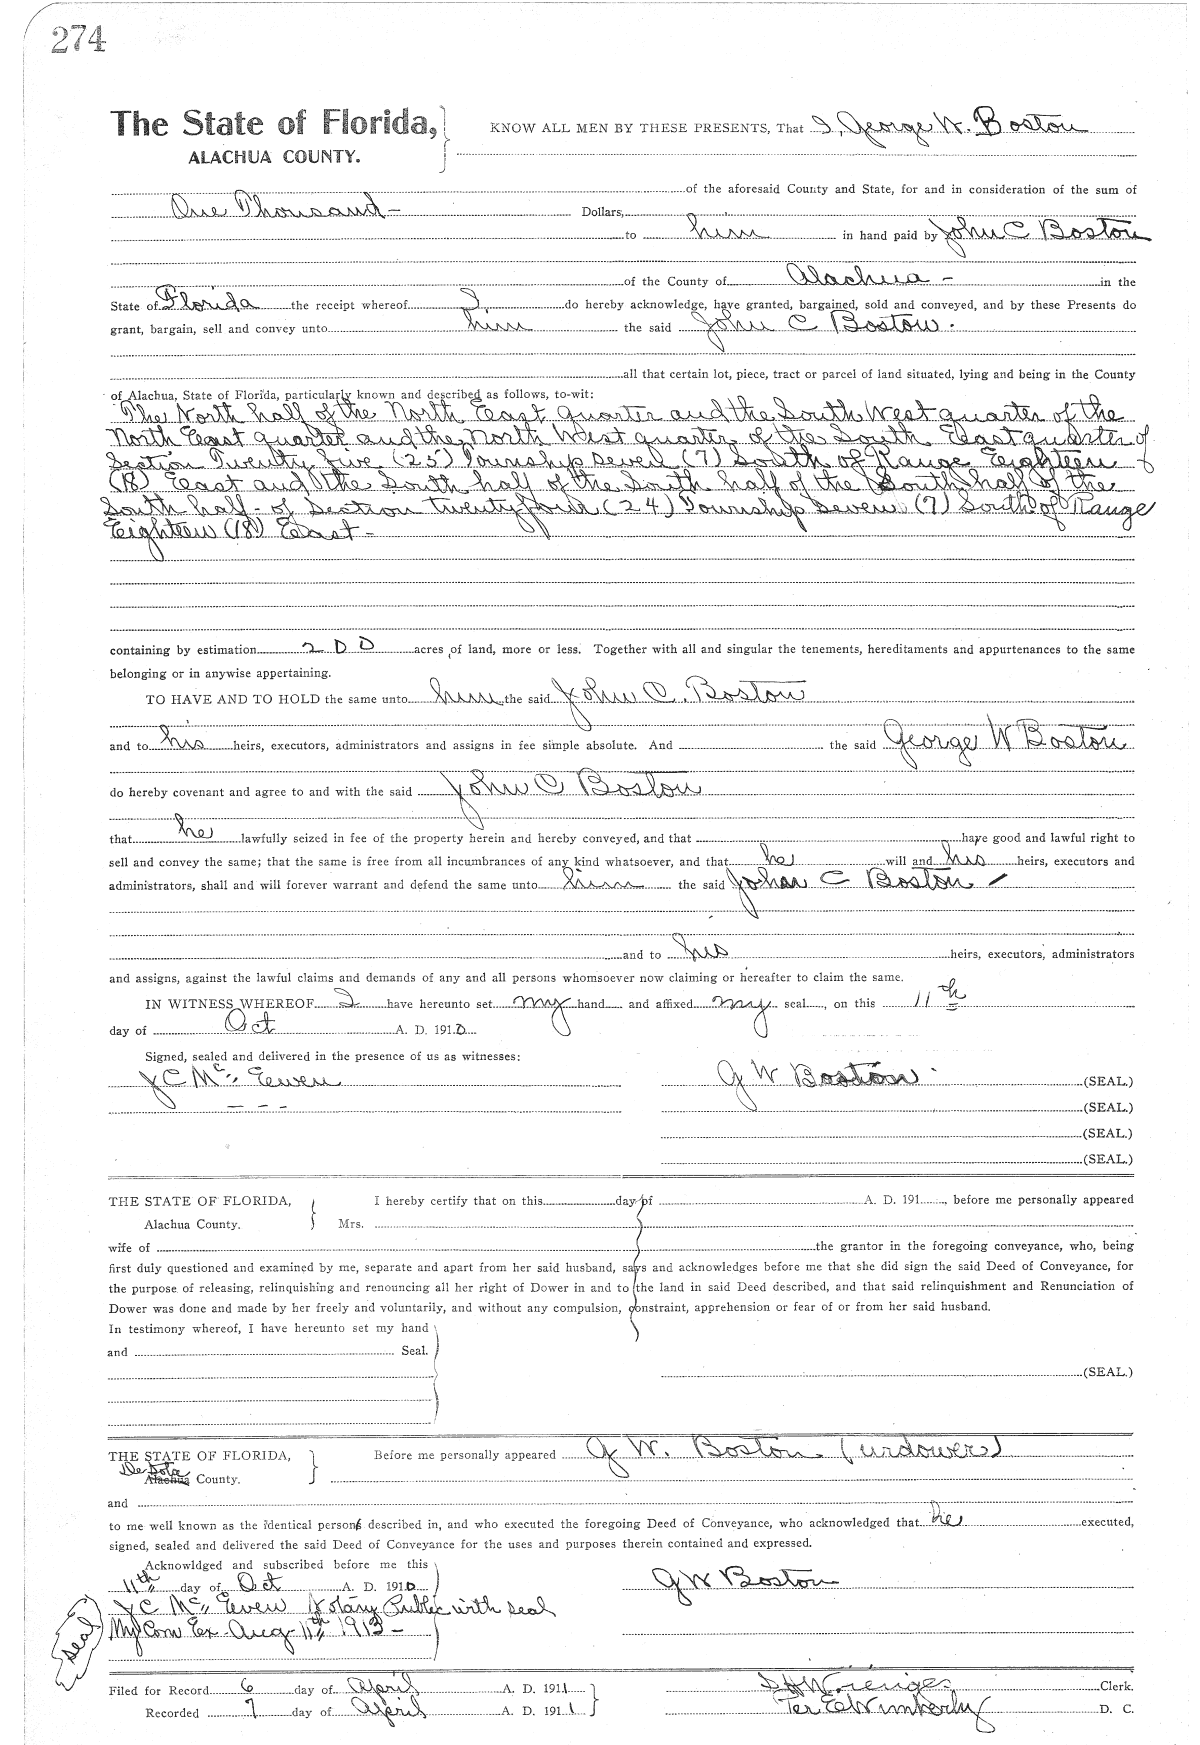 274
The State of Florida,
ALACHUA COUNTY.
KNOW ALL MEN BY THESE PRESENTS, That I, George W. Boston
of the aforesaid County and State, for and in consideration of the sum of
One Thousand - Dollars,
to him in hand paid by John C Boston
of the County of Alachua - in the
State of Florida the receipt whereof I do hereby acknowledge, have granted, bargained, sold and conveyed, and by these Presents do
grant, bargain, sell and convey unto him the said John C Boston.
all that certain lot, piece, tract or parcel of land situated, lying and being in the County
of Alachua, State of Florida, particularly known and described as follows, to-wit:
The North half of the North East quarter and the South West quarter of the
North East quarter and the North West quarter of the South East quarter of
Section Twenty five (25) Township seven (7) South of Range Eighteen
(18) East and the South half of the South half of the South half of the
South half - of Section twenty four (24) Township Seven (7) South of Range
Eighteen (18) East -
containing by estimation 200 acres of land, more or less. Together with all and singular the tenements, hereditaments and appurtenances to the same
belonging or in anywise appertaining.
TO HAVE AND TO HOLD the same unto him the said John C. Boston
and to his heirs, executors, administrators and assigns in fee simple absolute. And the said George W Boston
do hereby covenant and agree to and with the said John C Boston
that he lawfully seized in fee of the property herein and hereby conveyed, and that have good and lawful right to
sell and convey the same; that the same is free from all incumbrances of any kind whatsoever, and that he will and his heirs, executors and
administrators, shall and will forever warrant and defend the same unto him the said John C Boston
and to his heirs, executors, administrators
and assigns, against the lawful claims and demands of any and all persons whomsoever now claiming or hereafter to claim the same.
IN WITNESS WHEREOF I have hereunto set my hand and affixed my seal, on this 11th
day of Oct A. D. 1910
Signed, sealed and delivered in the presence of us as witnesses:
J C Mc Ewen G W Boston (SEAL.)
(SEAL.)
(SEAL.)
(SEAL.)
THE STATE OF FLORIDA,
Alachua County.
I hereby certify that on this day of A. D. 191 , before me personally appeared
Mrs.
wife of the grantor in the foregoing conveyance, who, being
first duly questioned and examined by me, separate and apart from her said husband, says and acknowledges before me that she did sign the said Deed of Conveyance, for
the purpose of releasing, relinquishing and renouncing all her right of Dower in and to the land in said Deed described, and that said relinquishment and Renunciation of
Dower was done and made by her freely and voluntarily, and without any compulsion, constraint, apprehension or fear of or from her said husband.
In testimony whereof, I have hereunto set my hand
and Seal.
(SEAL.)
THE STATE OF FLORIDA, Before me personally appeared G W. Boston (widower)
De Soto
Alachua County.
and
to me well known as the identical persons described in, and who executed the foregoing Deed of Conveyance, who acknowledged that he executed,
signed, sealed and delivered the said Deed of Conveyance for the uses and purposes therein contained and expressed.
Acknowldged and subscribed before me this
11th day of Oct A. D. 1910 G W Boston
J C Mc Ewen Notary Public with seal
My Com Ex Aug 11th 1913 -
Seal
Filed for Record 6 day of April A. D. 1911 Clerk.
Recorded 7 day of April A. D. 1911 Per E Wimberly D. C.